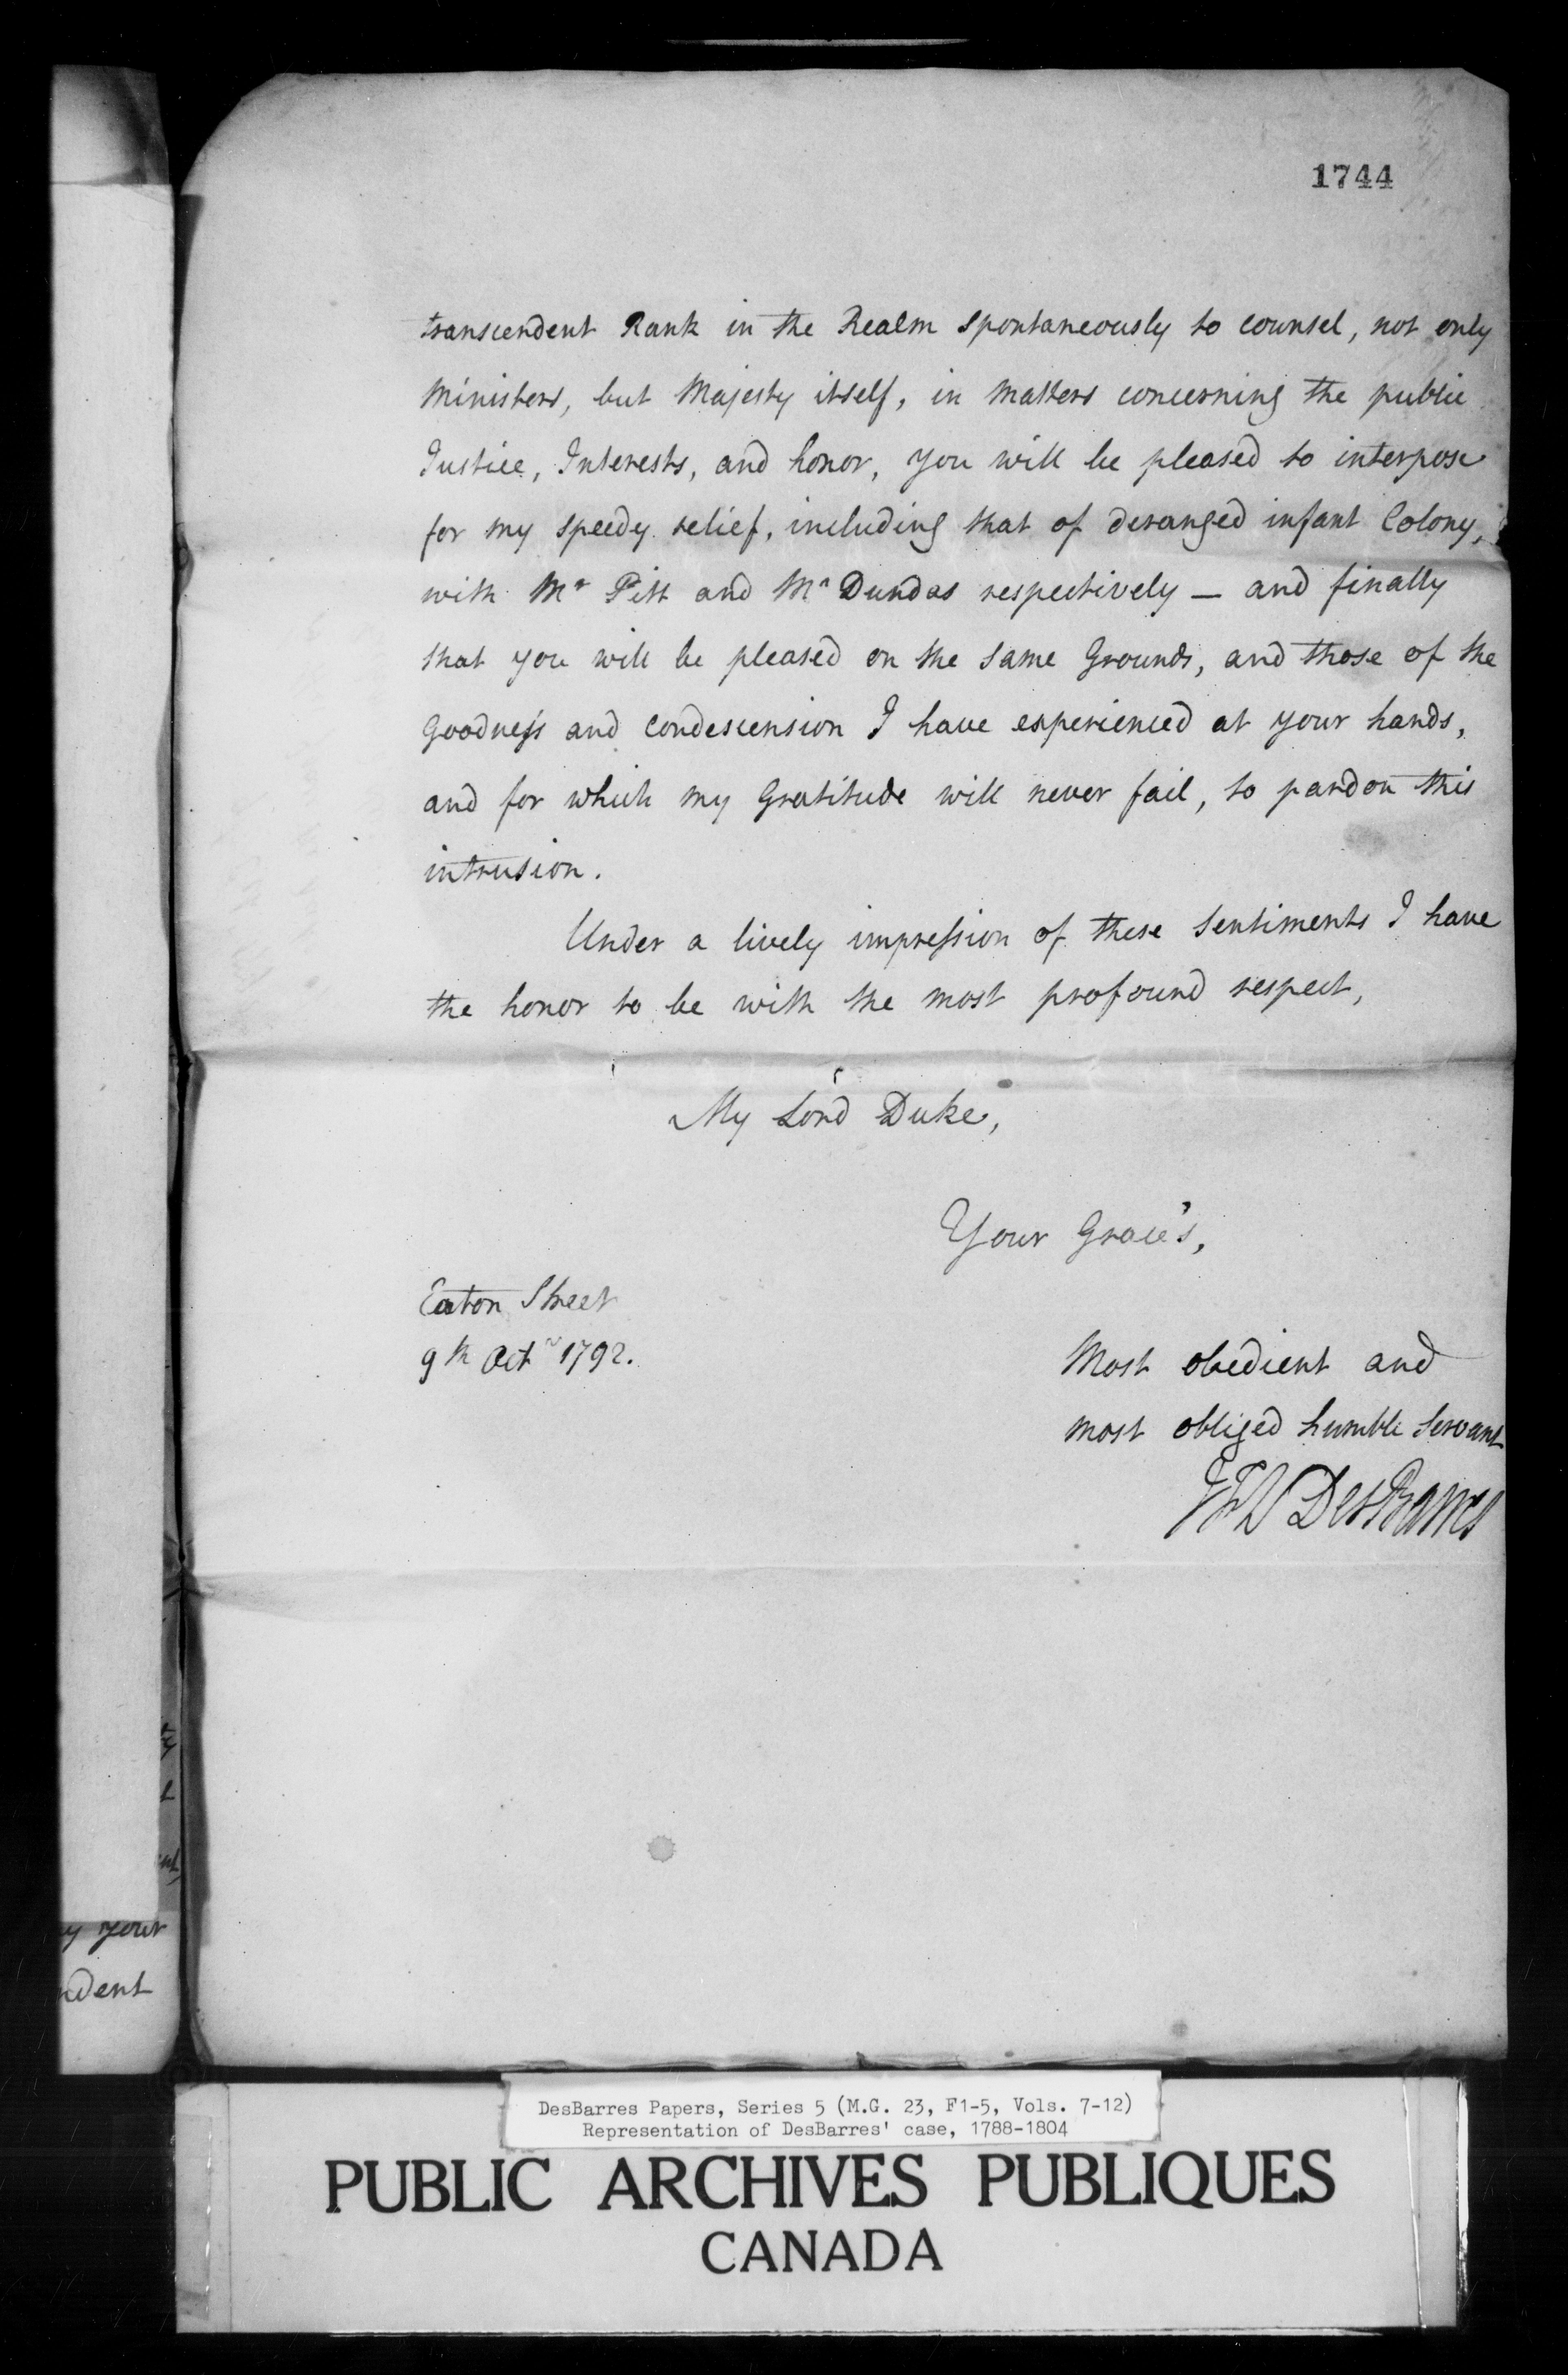 1744
transcendent Rank in the Realm spontaneously to counsel, not only
Ministers, but Majesty itself, in matters concerning the public
Justice, Interests, and honor, you will be pleased to interpose
for my speedy relief, including that of deranged infant Colony,
with Mr Pitt and Mr Dundas respectively — and finally
that you will be pleased on the same Grounds, and those of the
Goodness and Condescension I have experienced at your hands,
and for which my Gratitude will never fail, to pardon this
intrusion.
Under a lively impression of these Sentiments I have
the honor to be with the most profound respect,
My Lord Duke,
Your Grace's,
Eaton Street
9th Octr 1792.
Most obedient and
most obliged humble Servant
JFW DesBarres
y your
ndent
DesBarres Papers, Series 5 (M.G. 23, F1-5, Vols. 7-12)
Representation of DesBarres' case, 1788-1804
PUBLIC ARCHIVES PUBLIQUES
CANADA